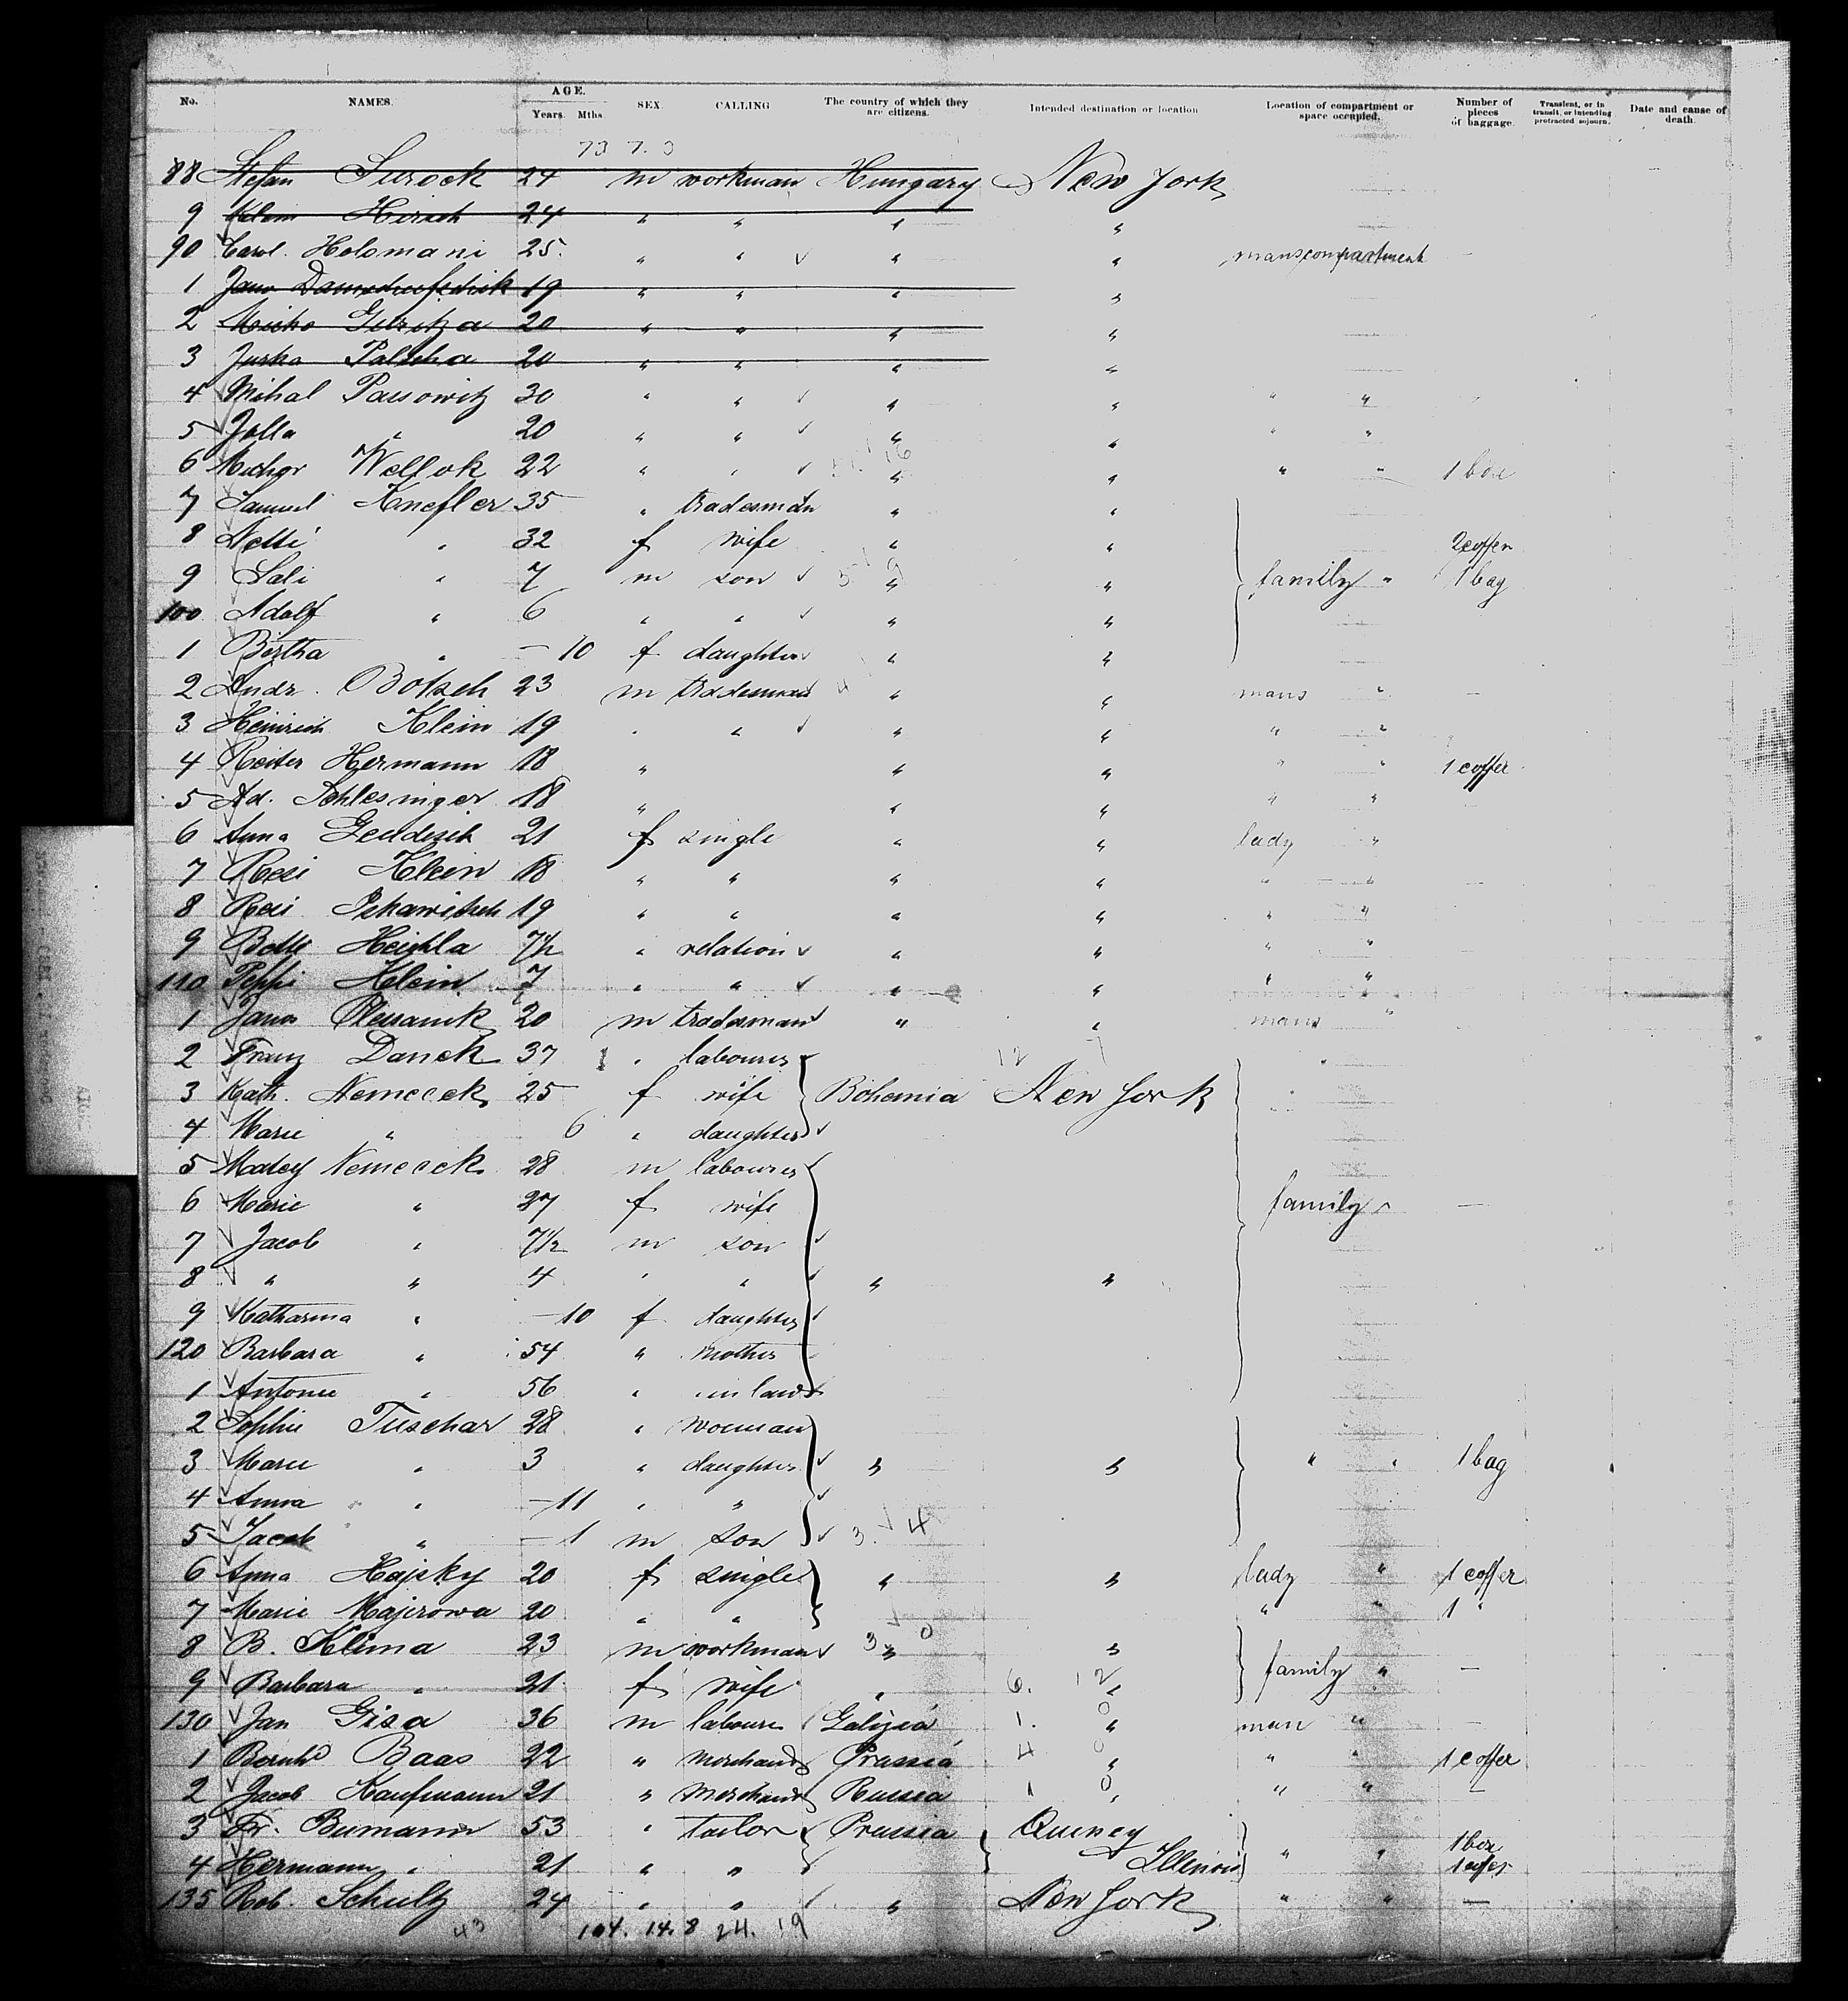 No. NAMES. AGE. Years. Mths. SEX. CALLING The country of which they are citizens. Intended destination or location Location of compartment or space occupied. Number of pieces of baggage. Transient, or in transit, or intending protracted sojourn. Date and cause of death.
73 7. 3
88 Stefan Surock 24 m workman Hungary New York
9 Klein Hersch 24 " " " "
90 Carol. Holomani 25. " " " " mans compartment
1 Jano 19 " " " "
2 Misko Guritza 20 " " " "
3 Jurka Paltscha 20 " " " "
4 Mihal Passowitz 30 " " " " " "
5 Jolla " 20 " " " " " "
6 Michor Wellok 22 " " " " " " 1 box
7 Samuel Knefler 35 " tradesman " "
8 Netti " 32 f wife " " 2 coffer
9 Sali " 7 m son " " family " 1 bag
100 Adolf " 6 " " " "
1 Bertha " — 10 f daughter " "
2 Andr. Botsch 23 m tradesman " " mans " —
3 Heinrich Klein 19 " " " " " "
4 Reiter Hermann 18 " " " " " 1 coffer
5 Ad. Schlesinger 18 " " " " "
6 Anna Gendesik 21 f single " " lady "
7 Resi Klein 18 " " " " " "
8 Resi Schawitsch 19 " " " " " "
9 Betti Heichla 7½ " relation " " " "
110 Peppi Klein 7 " " " " " "
1 Janos Plessanik 20 m tradesman " " mans "
2 Franz Danek 37 " labourer
3 Kath. Nemecek 25 f wife Bohemia New York
4 Marie " 6 " daughter
5 Matey Nemecek 28 m labourer
6 Marie " 27 f wife family " —
7 Jacob " 7½ m son
8 " " 4 " " " "
9 Katharina " — 10 f daughter
120 Barbara " 54 " mother
1 Antonie " 56 " in law
2 Sophie Tuschar 28 " woman
3 Marie " 3 " daughter " " " " 1 bag
4 Anna " — 11 " "
5 Jacob " — 1 m son 3. 4
6 Anna Hajsky 20 f single " " lady " 1 coffer
7 Marie Majerowa 20 " " " " 1 "
8 B. Klima 23 m workman 3 " 0 "
9 Barbara " 21 f wife " 6. 12 " family " —
130 Jan Gisa 36 m laboure Galizia 1. 0 " man " —
1 Bernhd Baas 22 " merchand Prussia 4 0 " " " 1 coffer
2 Jacob Kaufmann 21 " merchand Russia 1 0 " " " —
3 Fr. Bumann 53 " tailor Prussia Quincy
4 Hermann " 21 " " Illinois " " 1 box 1 coffer
135 Rob. Schultz 24 " " " New York " " —
43 104. 14. 8 24. 19